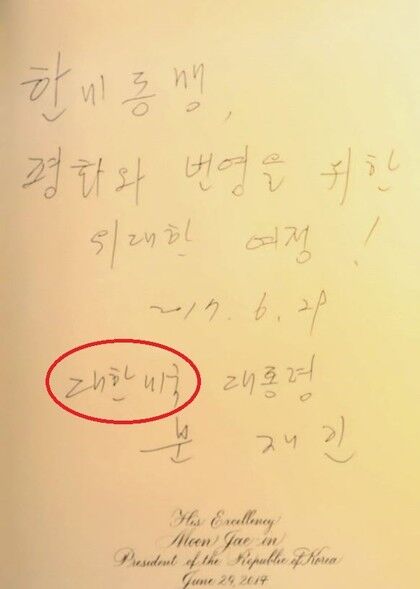 한미동맹,
평화와 번영을 위한
위대한 여정!
2017. 6. 29
대한미국 대통령
문 재 인
His Excellency
Moon Jae in
President of the Republic of Korea
June 29, 2017